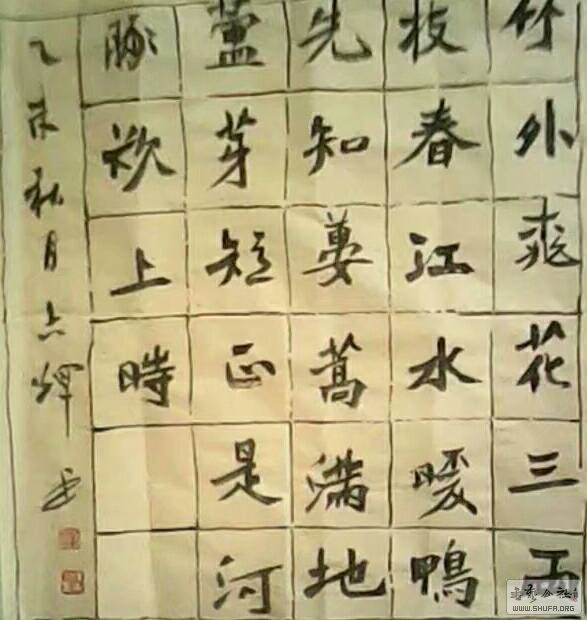 竹外桃花三两
枝春江水暖鴨
先知蔞蒿满地
蘆芽短正是河
豚欲上時
乙未秋月志輝书
书艺公社
WWW.SHUFA.ORG